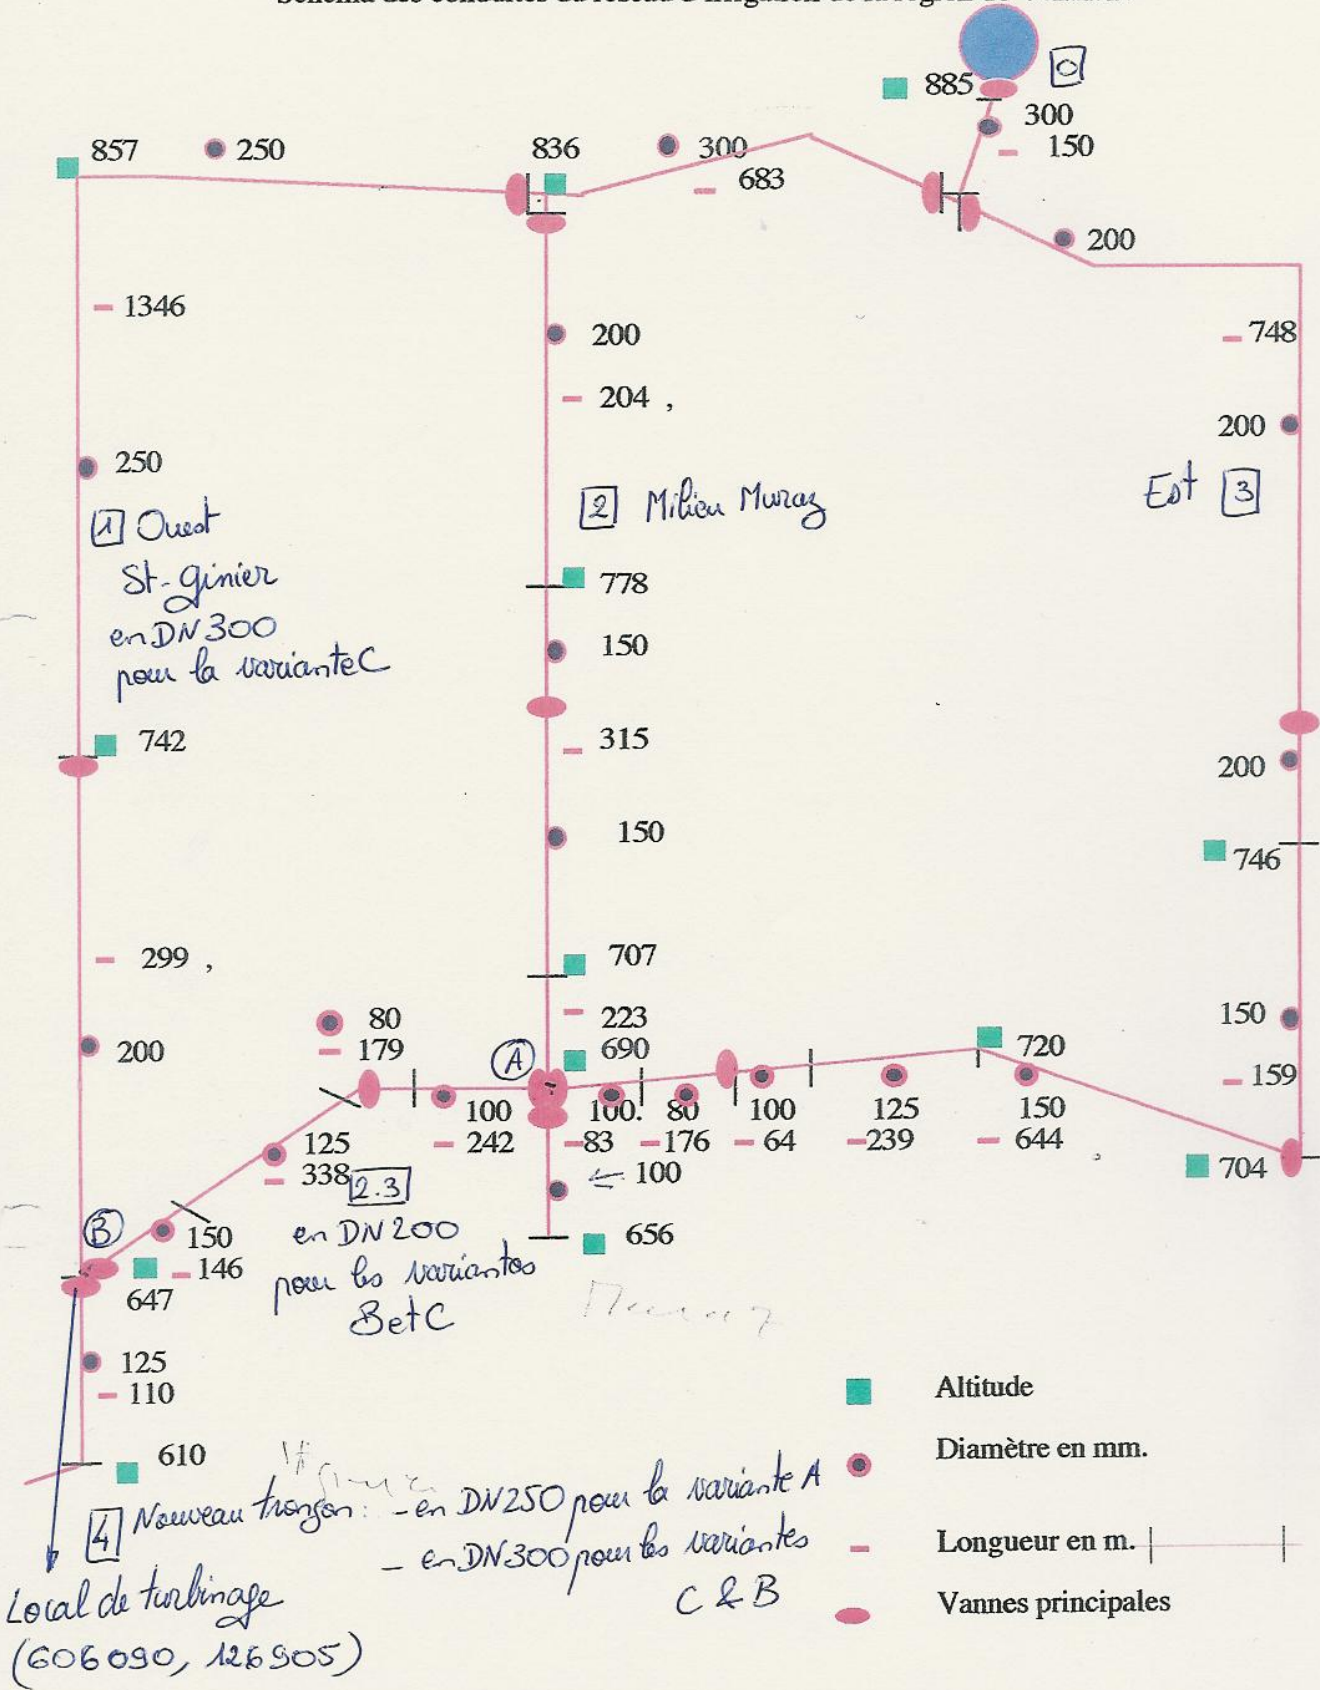 885
300
150
857
250
836
300
683
200
1346
200
748
204 ,
200
250
1 Ouest
St-Ginier
en DN 300
pour la variante C
2 Milieu Muraz
Est 3
778
150
742
315
200
150
746
299 ,
707
200
80
179
A
223
690
720
150
159
100
242
100.
83
80
176
100
64
125
239
150
644
125
338
2.3
en DN 200
pour les variantes
B et C
← 100
704
B
150
146
647
656
125
110
610
4 Nouveau tronçon : - en DN 250 pour la variante A
- en DN 300 pour les variantes
C & B
Local de turbinage
(606090, 126905)
Altitude
Diamètre en mm.
Longueur en m.
Vannes principales